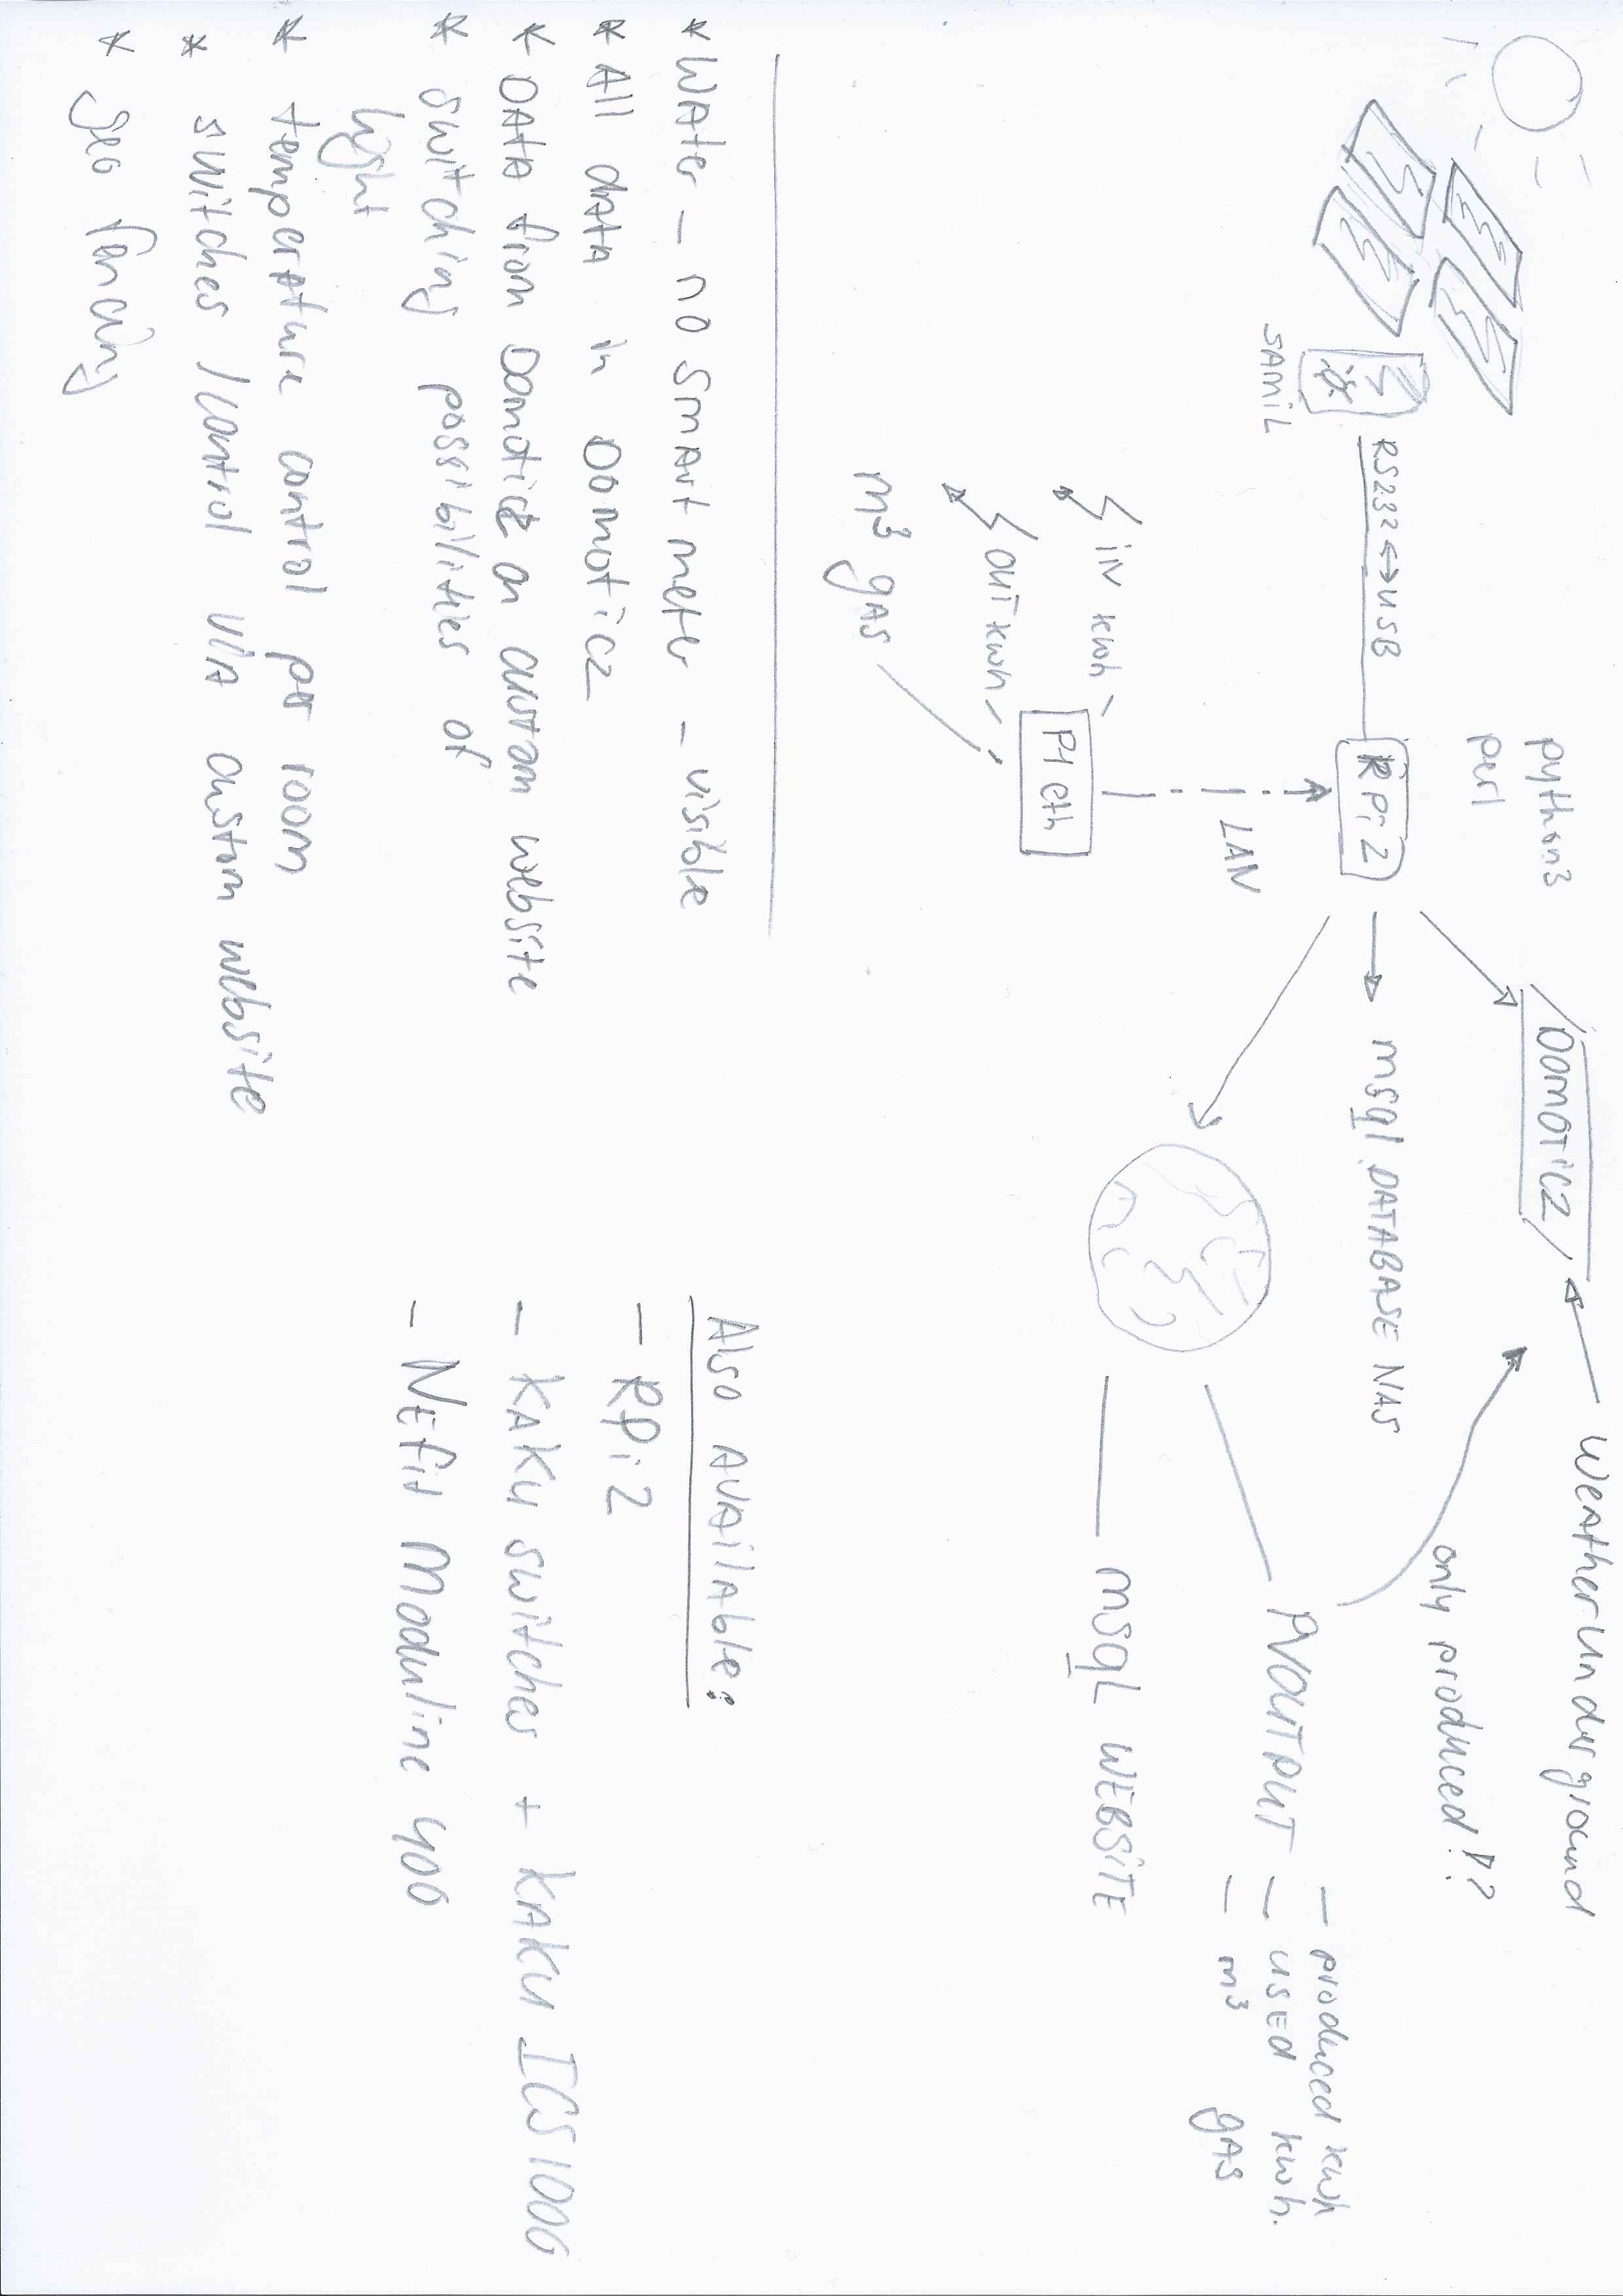 python3
perl
SAMIL
RS232 ↔ USB
RPi 2
LAN
IN kwh
OUT kwh
m³ gAS
P1 eth
DOMOTICZ
Weatherunderground
msql DATABASE NAS
only produced!??
PVOUTPUT
- produced kwh
- USED kwh.
- m³ gAS
msqL WEBSITE
* WAter - no smart meter - visible
* All dATA in DOMOTICZ
* DATA from Domoticz on custom website
* switching possibilities of
light
* temperAture control per room
* switches / control VIA custom website
* geo fencing
Also AVAilAble:
- RPi 2
- KAKU switches + KAKU ICS1000
- NEfit Moduline 400